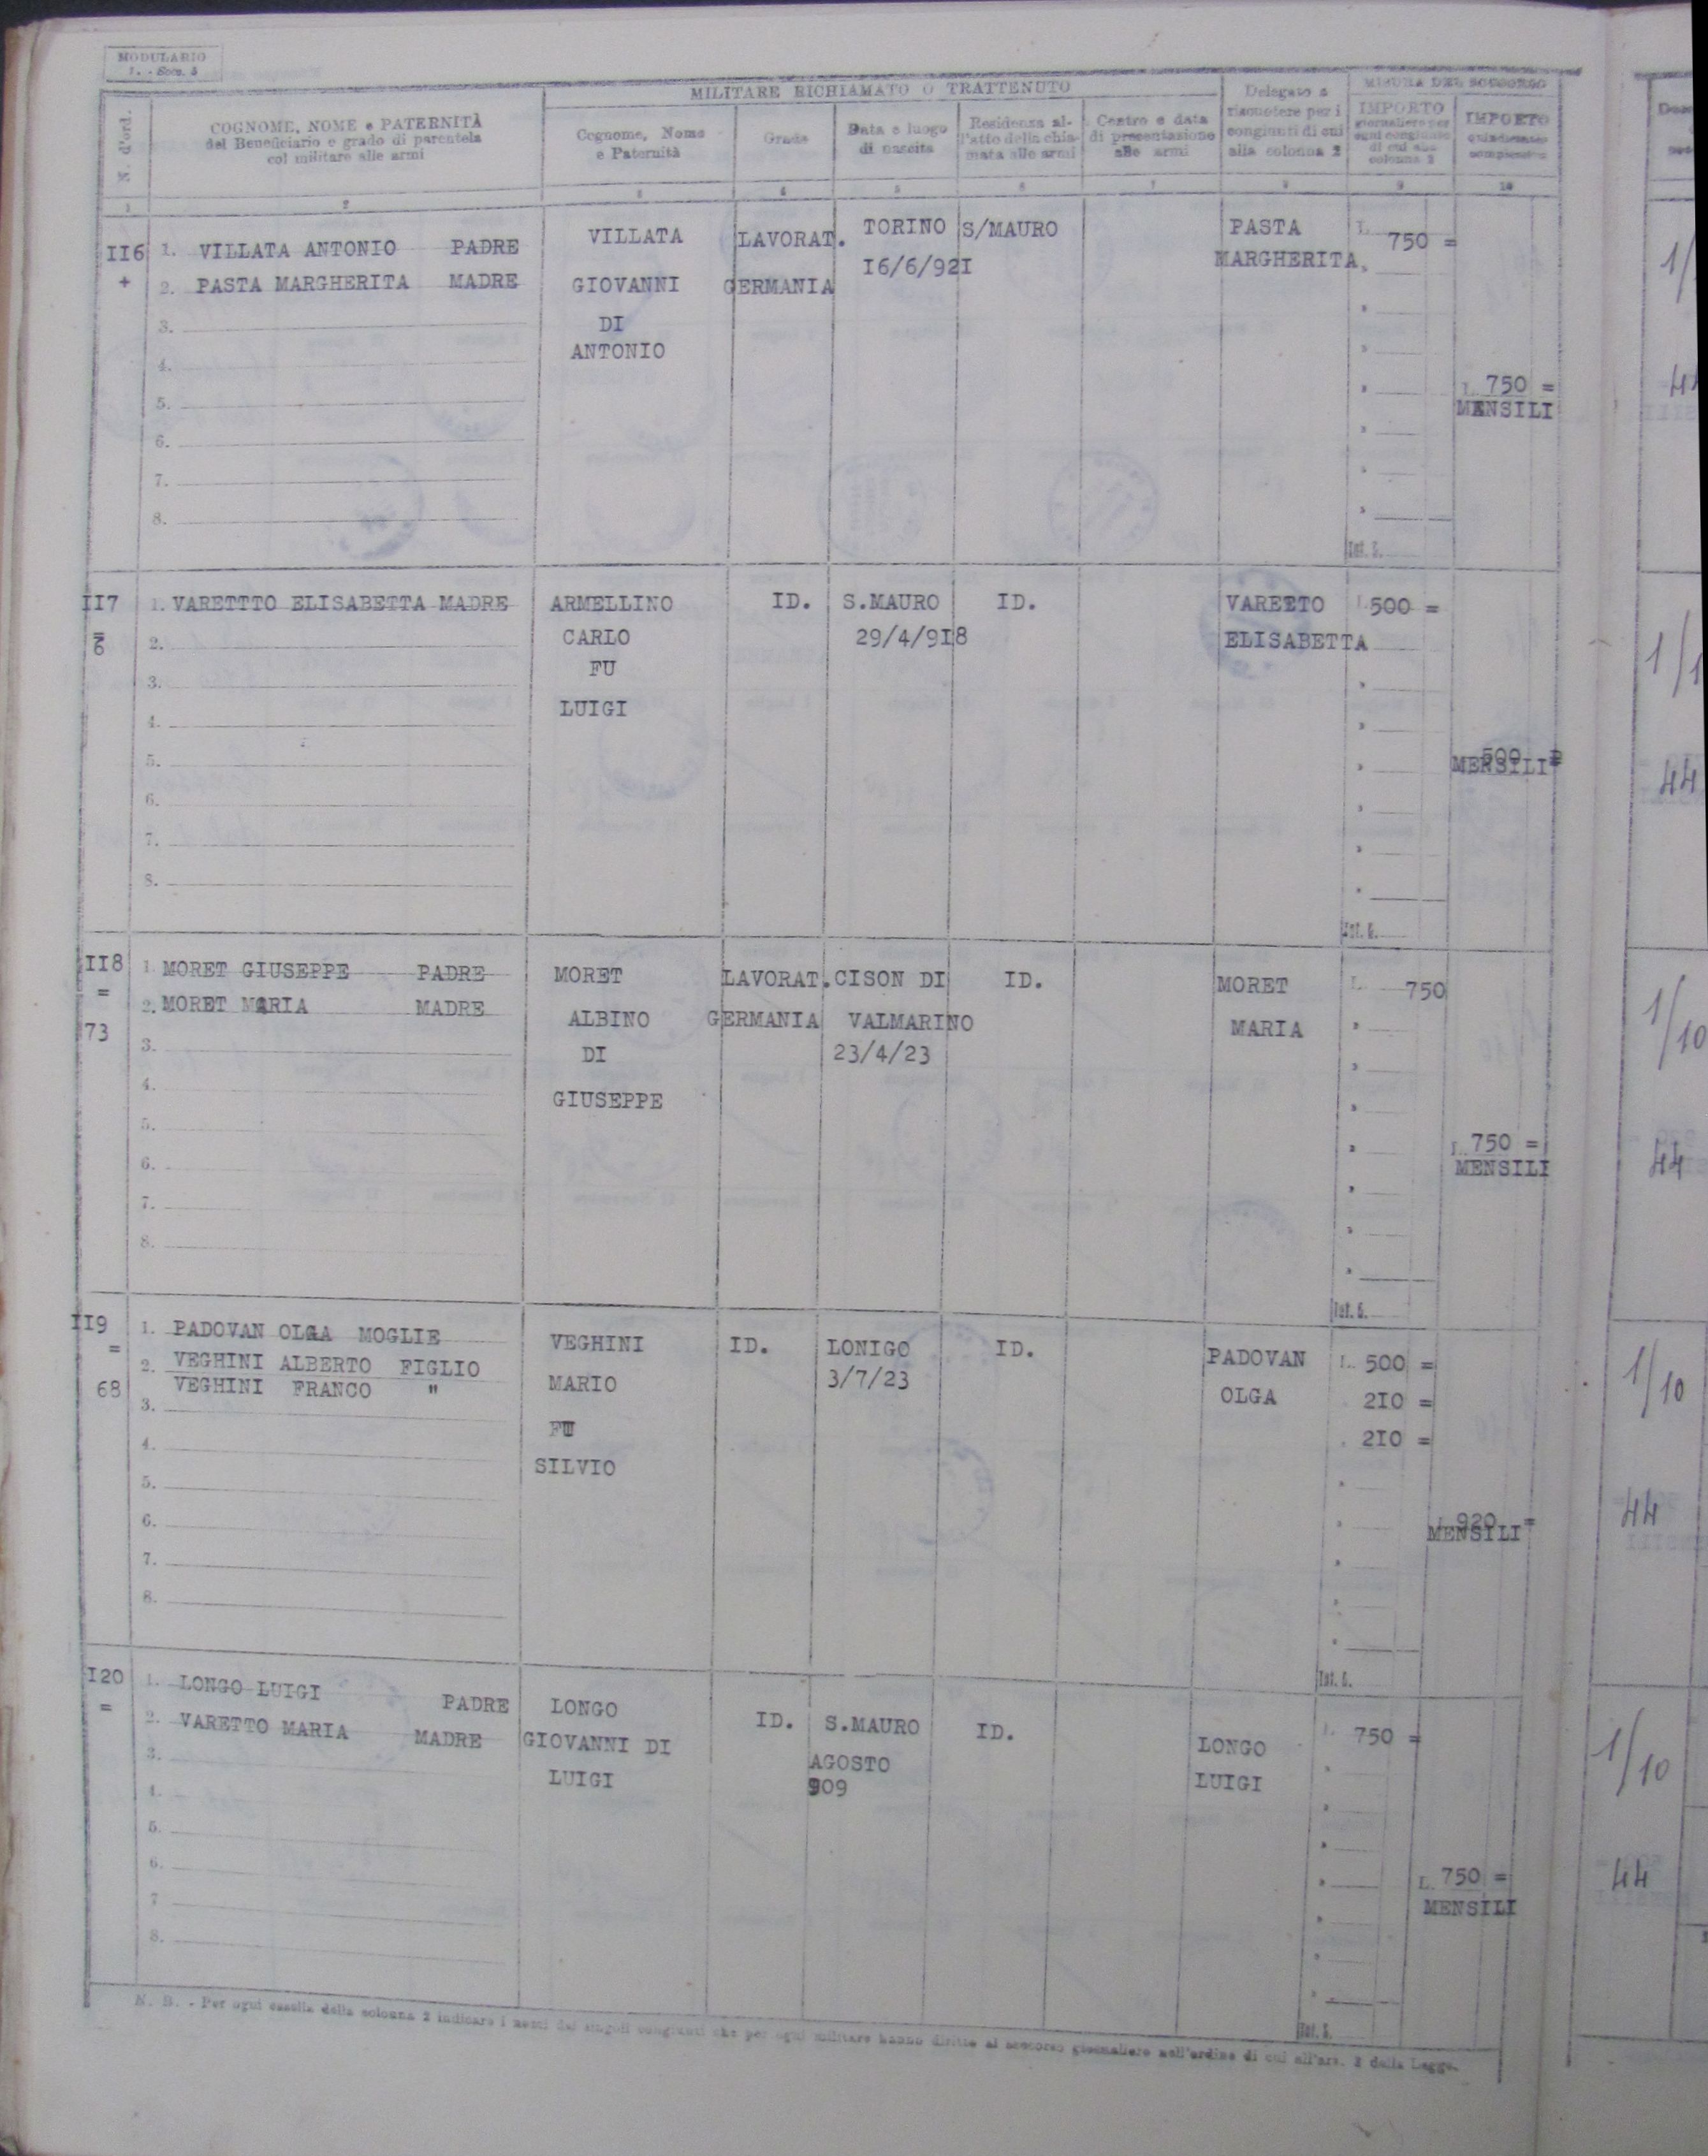 MODULARIO
1. - Socc. 5
N. d'ord.
COGNOME, NOME e PATERNITÀ
del Beneficiario e grado di parentela
col militare alle armi
MILITARE RICHIAMATO O TRATTENUTO
Cognome, Nome
e Paternità
Grado
Data e luogo
di nascita
Residenza al-
l'atto della chia-
mata alle armi
Centro e data
di presentazione
alle armi
Delegato a
riscuotere per i
congiunti di cui
alla colonna 2
MISURA DEL SOCCORSO
IMPORTO
giornaliero per
ogni congiunto
di cui alla
colonna 2
IMPORTO
quindicinale
complessivo
1 2 3 4 5 6 7 8 9 10
II6
+
1. VILLATA ANTONIO PADRE
2. PASTA MARGHERITA MADRE
3.
4.
5.
6.
7.
8.
VILLATA
GIOVANNI
DI
ANTONIO
LAVORAT.
GERMANIA
TORINO
I6/6/92I
S/MAURO
PASTA
MARGHERITA
L. 750 =
L. 750 =
MENSILI
Tot. L.
II7
=
6
1. VARETTTO ELISABETTA MADRE
2.
3.
4.
5.
6.
7.
8.
ARMELLINO
CARLO
FU
LUIGI
ID.
S.MAURO
29/4/9I8
ID.
VARETTO
ELISABETTA
L. 500 =
500 =
MENSILI
Tot. L.
II8
=
73
1. MORET GIUSEPPE PADRE
2. MORET MARIA MADRE
3.
4.
5.
6.
7.
8.
MORET
ALBINO
DI
GIUSEPPE
LAVORAT.
GERMANIA
CISON DI
VALMARINO
23/4/23
ID.
MORET
MARIA
L. 750
L. 750 =
MENSILI
Tot. L.
II9
=
68
1. PADOVAN OLGA MOGLIE
2. VEGHINI ALBERTO FIGLIO
VEGHINI FRANCO "
3.
4.
5.
6.
7.
8.
VEGHINI
MARIO
FU
SILVIO
ID.
LONIGO
3/7/23
ID.
PADOVAN
OLGA
L. 500 =
2I0 =
2I0 =
920 =
MENSILI
Tot. L.
I20
=
1. LONGO LUIGI PADRE
2. VARETTO MARIA MADRE
3.
4.
5.
6.
7
8.
LONGO
GIOVANNI DI
LUIGI
ID.
S.MAURO
AGOSTO
909
ID.
LONGO
LUIGI
L. 750 =
L. 750 =
MENSILI
Tot. L.
N. B. - Per ogni casella della colonna 2 indicare i nomi dei singoli congiunti che per ogni militare hanno diritto al soccorso giornaliero nell'ordine di cui all'art. 2 della Legge.
44
44
1/10
44
1/10
44
1/10
44